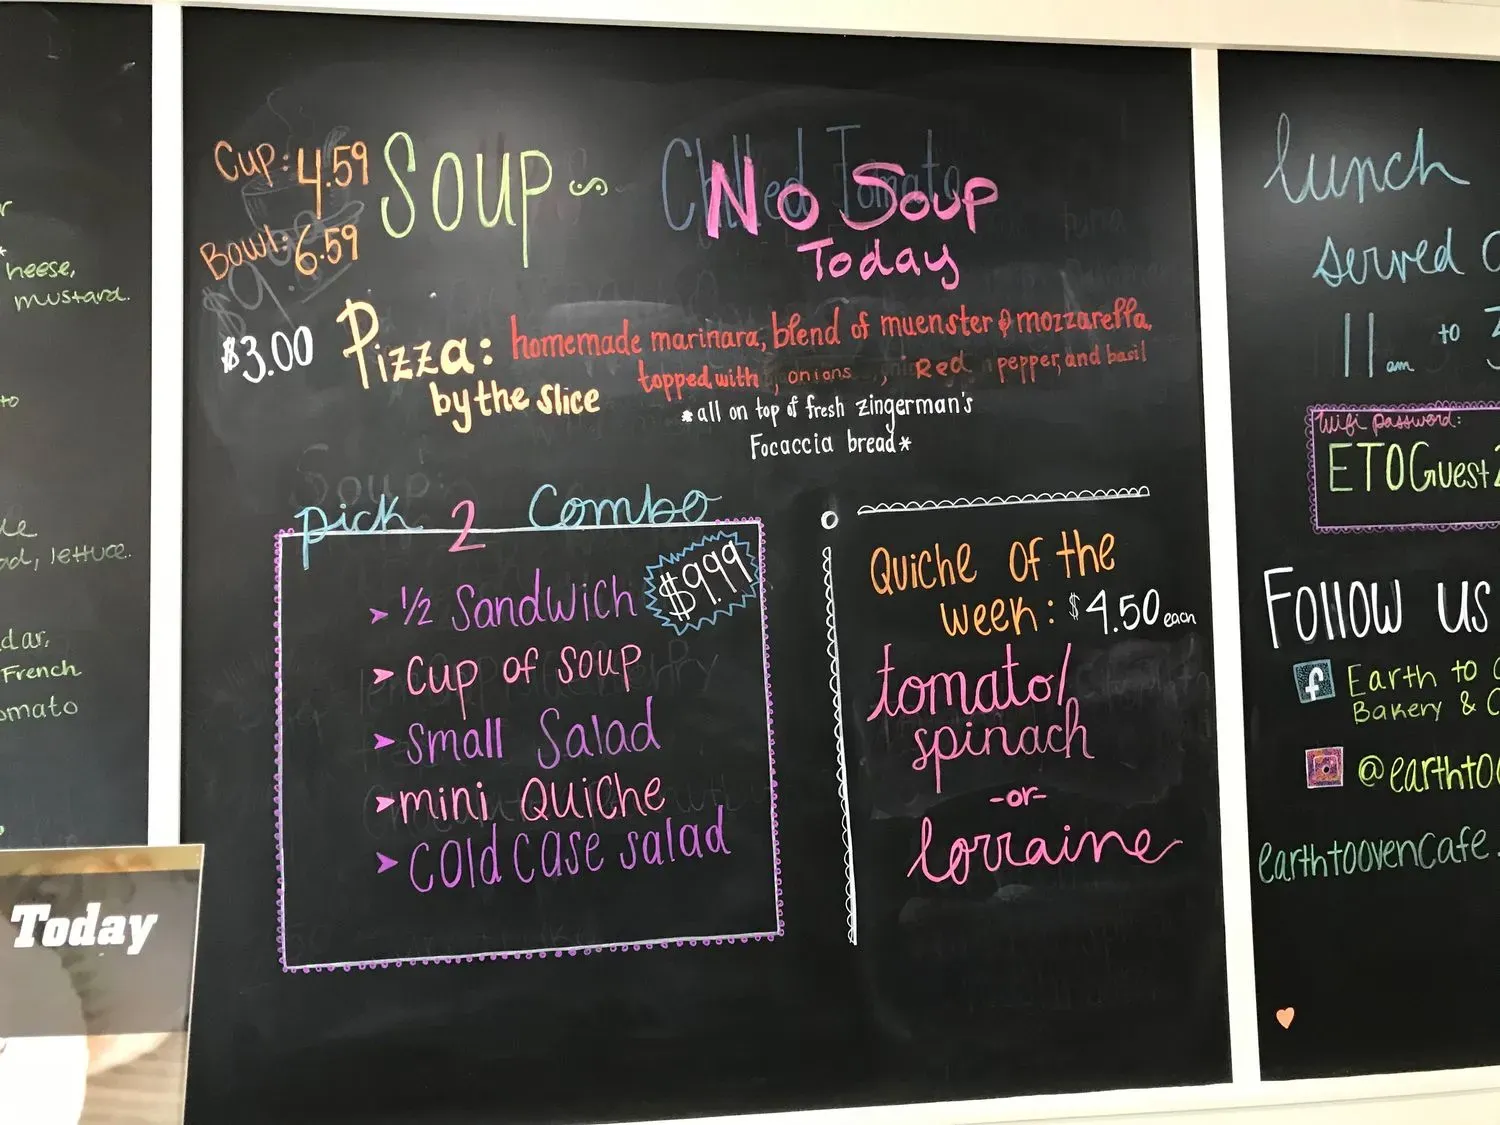 heese,
mustard.
lettuce.
French
Today
Cup: 4.59
Bowl: 6.59
Soup~
Chilled Tomato
No Soup
Today
$3.00 Pizza:
by the slice
homemade marinara, blend of muenster & mozzarella,
topped with, onions, Red pepper, and basil
*all on top of fresh zingerman's
Focaccia bread*
pick 2 Combo
$9.99
➤ 1/2 Sandwich
➤ Cup of soup
➤ Small Salad
➤ mini Quiche
➤ cold case salad
Quiche of the
week: $4.50 each
tomato/
spinach
-or-
lorraine
lunch
served
11 am to
Wifi password:
ETOGuest2
Follow us
f Earth to
Bakery & C
@earthtoo
earthtoovencafe.